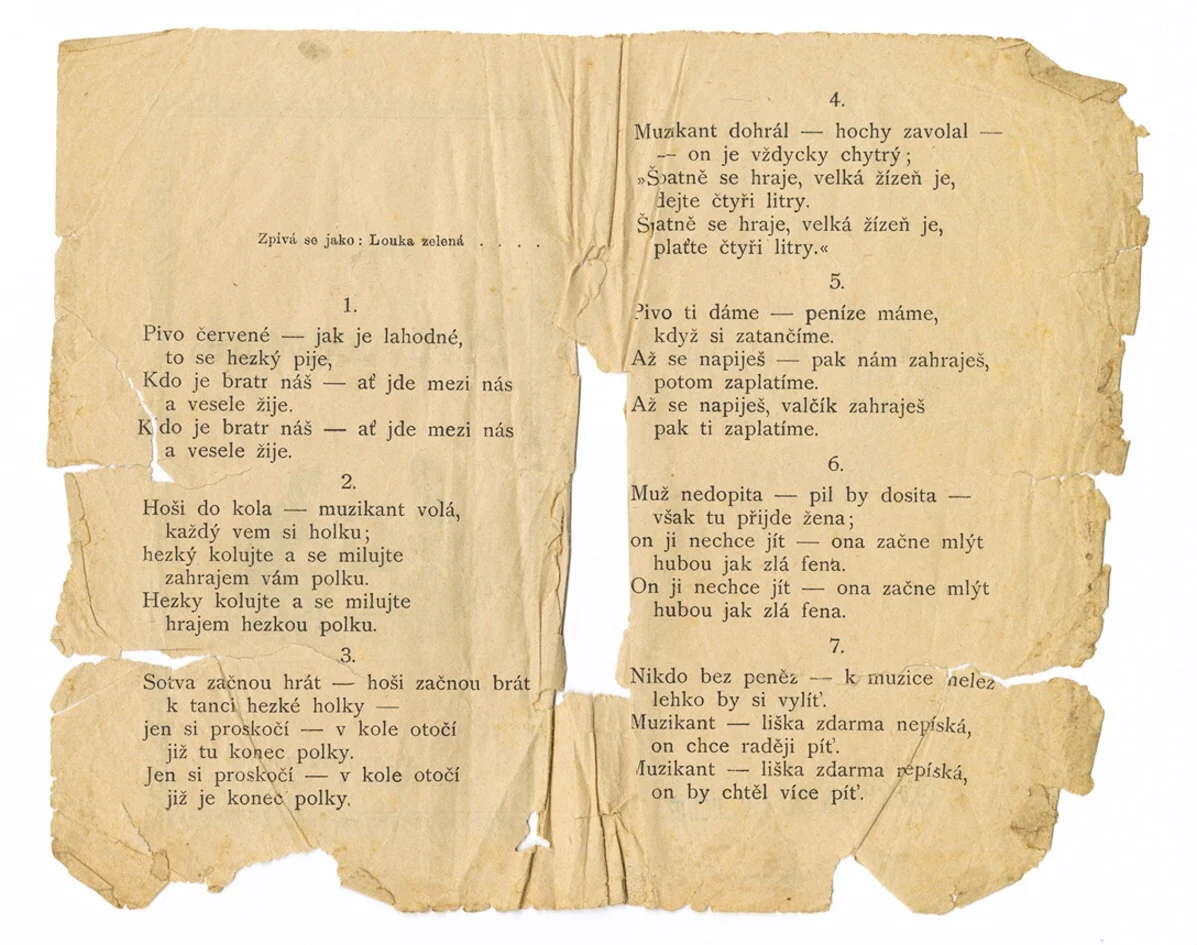 Zpívá se jako: Louka zelená . . . .
1.
Pivo červené — jak je lahodné,
to se hezký pije,
Kdo je bratr náš — ať jde mezi nás
a vesele žije.
Kdo je bratr náš — ať jde mezi nás
a vesele žije.
2.
Hoši do kola — muzikant volá,
každý vem si holku;
hezký kolujte a se milujte
zahrajem vám polku.
Hezky kolujte a se milujte
hrajem hezkou polku.
3.
Sotva začnou hrát — hoši začnou brát
k tanci hezké holky —
jen si proskočí — v kole otočí
již tu konec polky.
Jen si proskočí — v kole otočí
již je konec polky.
4.
Muzikant dohrál — hochy zavolal —
— on je vždycky chytrý;
»Špatně se hraje, velká žízeň je,
dejte čtyři litry.
Špatně se hraje, velká žízeň je,
plaťte čtyři litry.«
5.
Pivo ti dáme — peníze máme,
když si zatančíme.
Až se napiješ — pak nám zahraješ,
potom zaplatíme.
Až se napiješ, valčík zahraješ
pak ti zaplatíme.
6.
Muž nedopita — pil by dosita —
však tu přijde žena;
on ji nechce jít — ona začne mlýt
hubou jak zlá fena.
On ji nechce jít — ona začne mlýt
hubou jak zlá fena.
7.
Nikdo bez peněz — k muzice nelez
lehko by si vylíť.
Muzikant — liška zdarma nepíská,
on chce raději píť.
Muzikant — liška zdarma nepíská,
on by chtěl více píť.